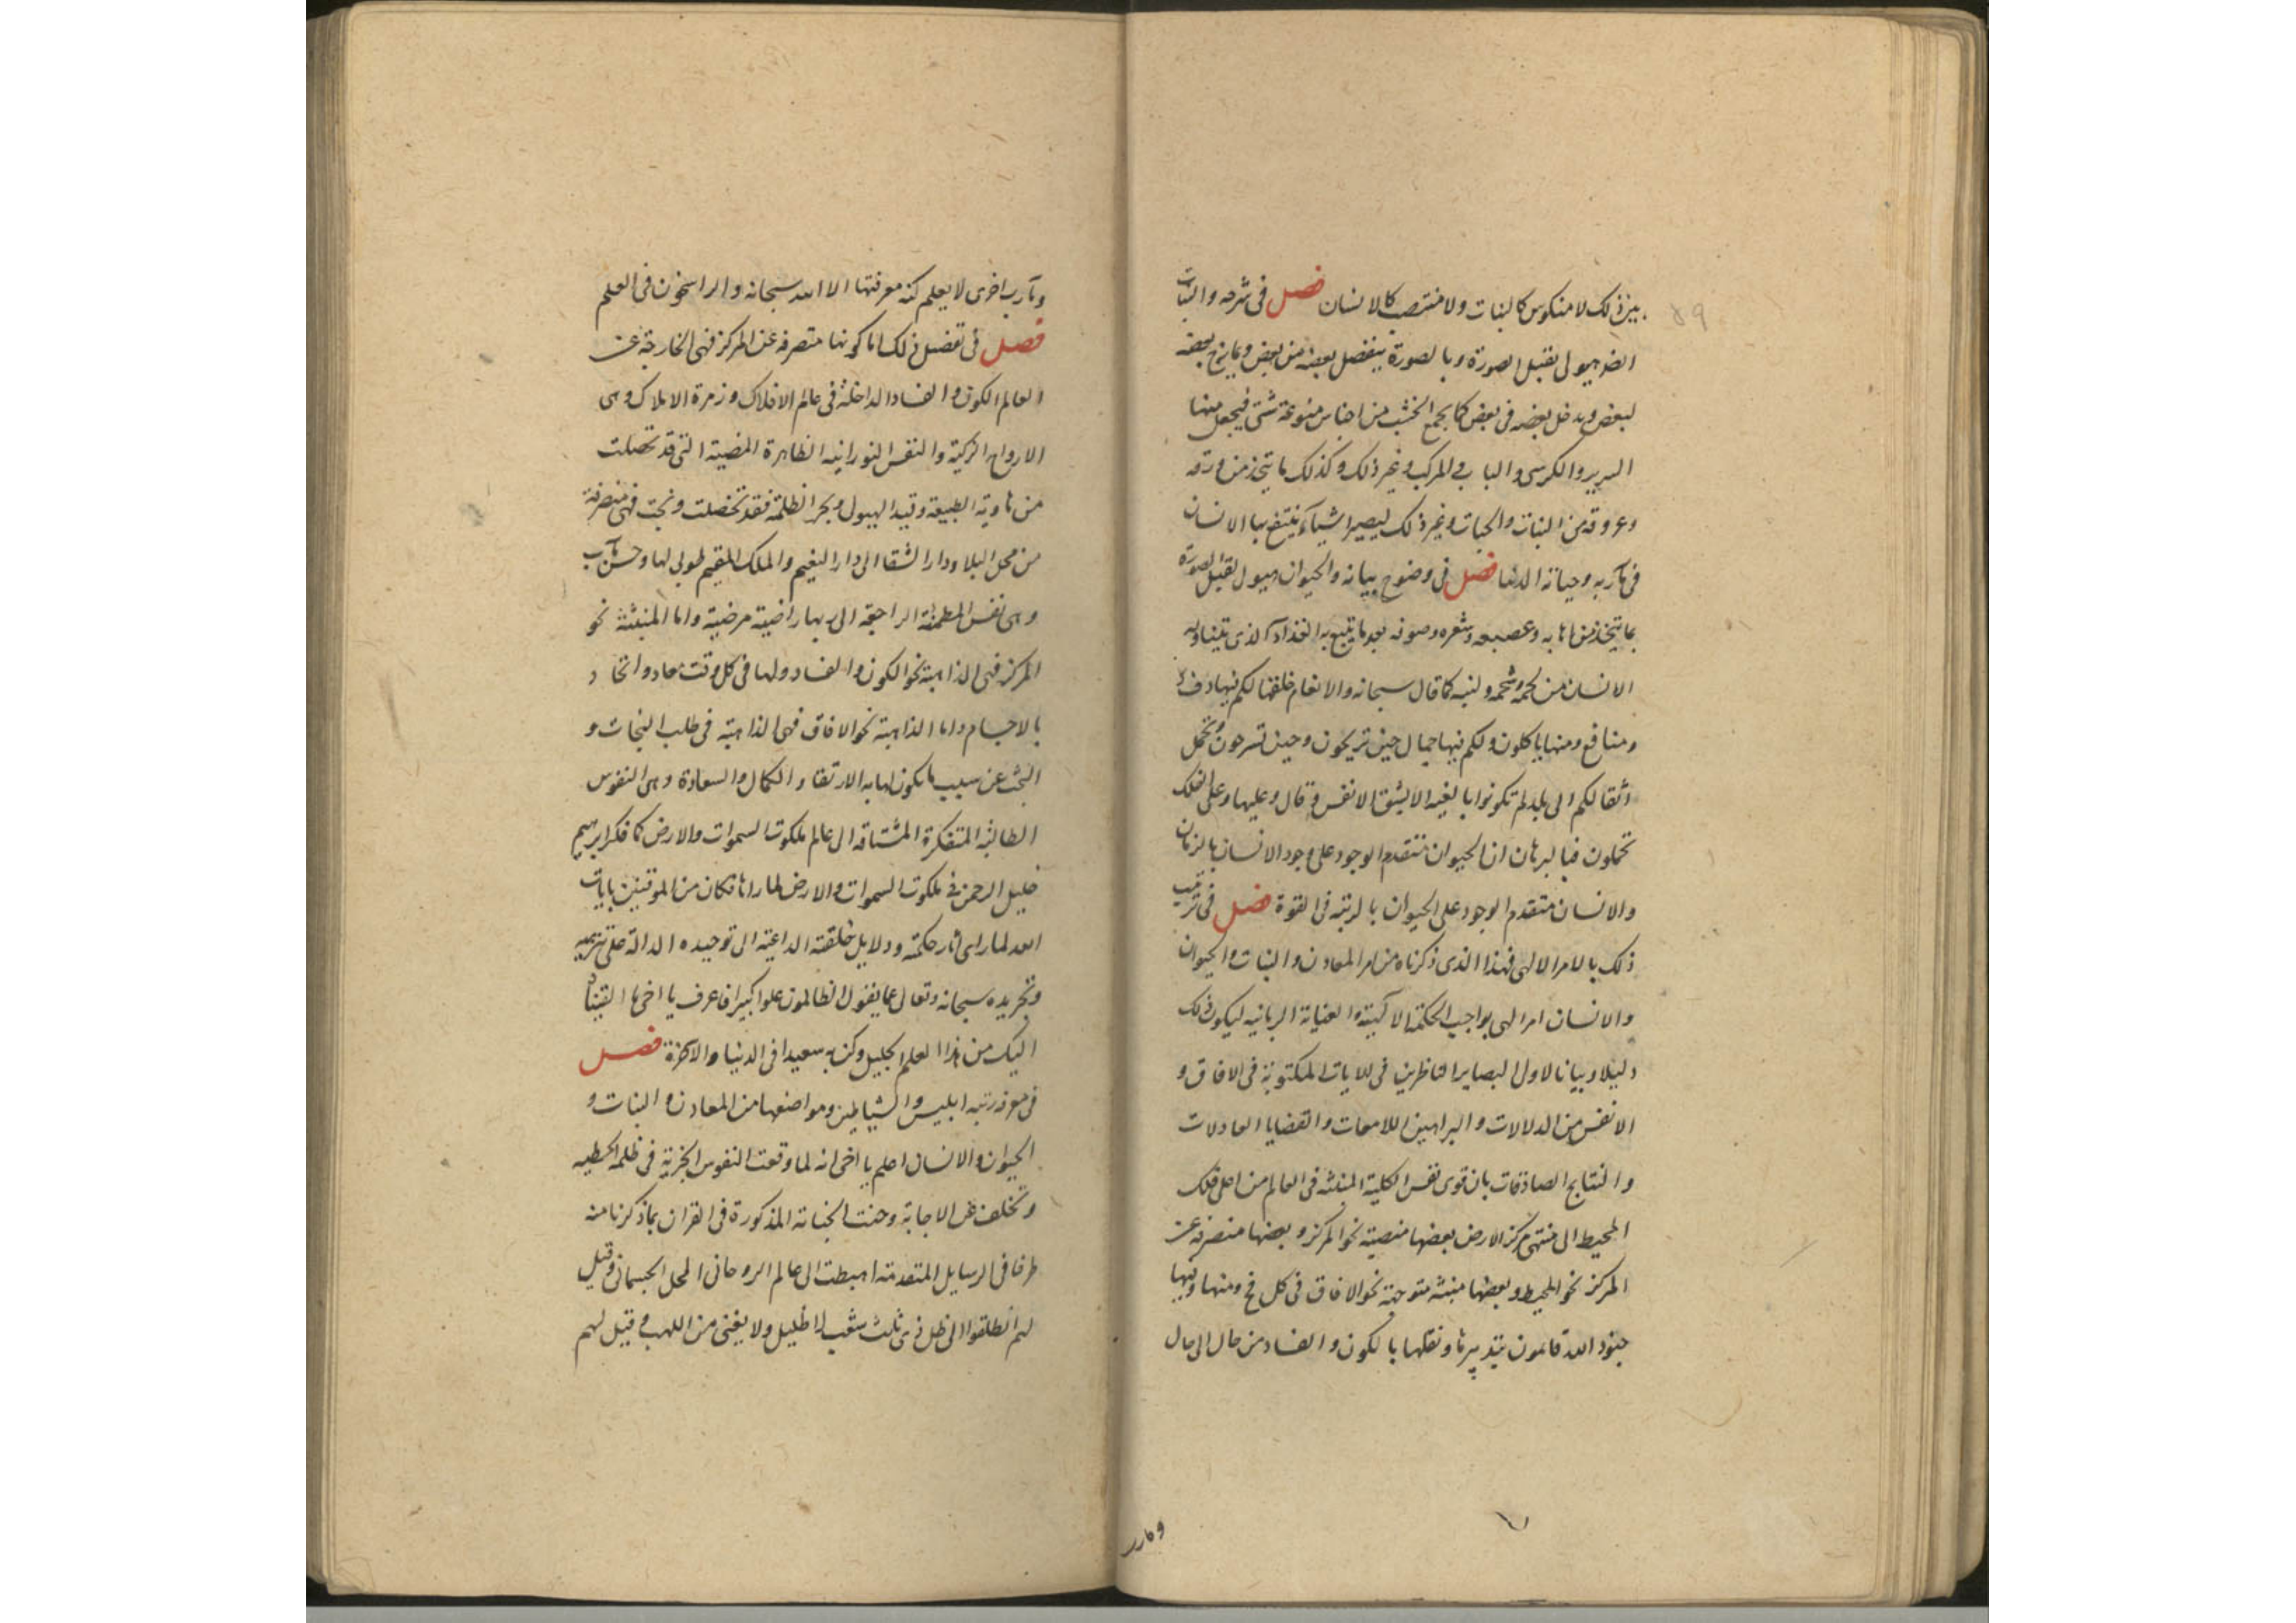 ٥٩
بين ذلك لا منكوس كالنبات ولا منتصب كالانسان فصل فى شرحه والنبات
ايضا هيولى يقبل الصورة وبالصورة ينفصل بعضه من بعض ويمازج بعضه
لبعض ويدخل بعضه فى بعض كما يجمع الخشب من اجناس متنوعة شتى فيجعل منها
السرير والكرسى والباب والمركب وغير ذلك وكذلك ما يتخذ من ورقه
وعروقه من النبات والحبات وغير ذلك ليصير اشياء ينتفع بها الانسان
فى مآربه وحياته الدنيا فصل فى وضوح بيانه والحيوان هيولى لقبل الصورة
بما يتخذ من اهابه وعصبه وشعره وصوفه بعد ما يتبع به الغذاء الذى يتناوله
الانسان من لحمه وشحمه ولبنه كما قال سبحانه والانعام خلقها لكم فيها دفء
ومنافع ومنها تاكلون ولكم فيها جمال حين تريحون وحين تسرحون وتحمل
اثقالكم الى بلد لم تكونوا بالغيه الا بشق الانفس وقال وعليها وعلى الفلك
تحملون فبالبرهان ان الحيوان متقدم الوجود على وجود الانسان بالزمان
والانسان متقدم الوجود على الحيوان بالرتبة فى القوة فصل فى ترتيب
ذلك بالامر الالهى فهذا الذى ذكرناه من امر المعادن والنبات والحيوان
والانسان امر الهى بواجب الحكمة الالهية والعناية الربانيه ليكون ذلك
دليلا وبيانا لاولى البصاير الناظرين فى الايات المكتوبة فى الافاق و
الانفس من الدلالات والبراهين اللامعات والقضايا العادلات
والنتايج الصادقات بان قوى نفس الكلية المنبثة فى العالم من اعلى فلك
المحيط الى منتهى مركز الارض بعضها منصبة نحو المركز وبعضها منصرفة عن
المركز نحو المحيط وبعضها منبثة متوجهة نحو الافاق فى كل فج ومنها وفيها
جنود الله قائمون بتدبيرها ونقلها بالكون والفساد من حال الى حال
ومآرب
ومآرب اخرى لا يعلم كنه معرفتها الا الله سبحانه والراسخون فى العلم
فصل فى تفصيل ذلك اما كونها متصرفة عن المركز فهى الخارجة عن
العالم الكون والفساد الداخلة فى عالم الافلاك وزمرة الاملاك وهى
الارواح الزكية والنفس النورانيه الطاهرة المضية التى قد تحصلت
من هاوية الطبيعة وقيد الهيولى وبحر الظلمة فقد تخصلت ونجت فهى منصرفة
من محل البلا ودار الشقا الى دار النعيم والملك المقيم طوبى لها وحسن مآب
وهى نفس المطمئنة الراجعة الى ربها راضية مرضية واما المنبثة نحو
المركز فهى الذاهبة نحو الكون والفساد ولها فى كل وقت معاد واتحاد
بالاجسام واما الذاهبة نحو الافاق فهى الذاهبة فى طلب النجات و
البحث عن سبب ما يكون لها به الارتقاء والكمال والسعادة وهى النفوس
الطالبة المتفكرة المشتاقة الى عالم ملكوت السموات والارض كما فكر ابرهيم
خليل الرحمن فى ملكوت السموات والارض لما راها فكان من الموقنين بايات
الله لما راى آثار حكمته ودلايل خلقته الداعية الى توحيده الدالة على تنزيهه
وتجريده سبحانه وتعالى عما يقول الظالمون علوا كبيرا فاعرف يا اخى ما القيناه
اليك من هذا العلم الجليل وكن به سعيدا فى الدنيا والآخرة فصل
فى معرفة رتبه ابليس والشياطين ومواضعها من المعادن والنبات و
الحيوان والانسان اعلم يا اخى انه لما وقعت النفوس الجزية فى ظلمة الخطيه
وتخلفت عن الاجابة وجنت الجناية المذكورة فى القران بما ذكرنا منه
طرفا فى الرسايل المتقدمة اهبطت الى عالم الروحانى المحل الجسمانى وقيل
لهم انطلقوا الى ظل ذى ثلث شعب لا ظليل ولا يغنى من اللهب وقيل لهم